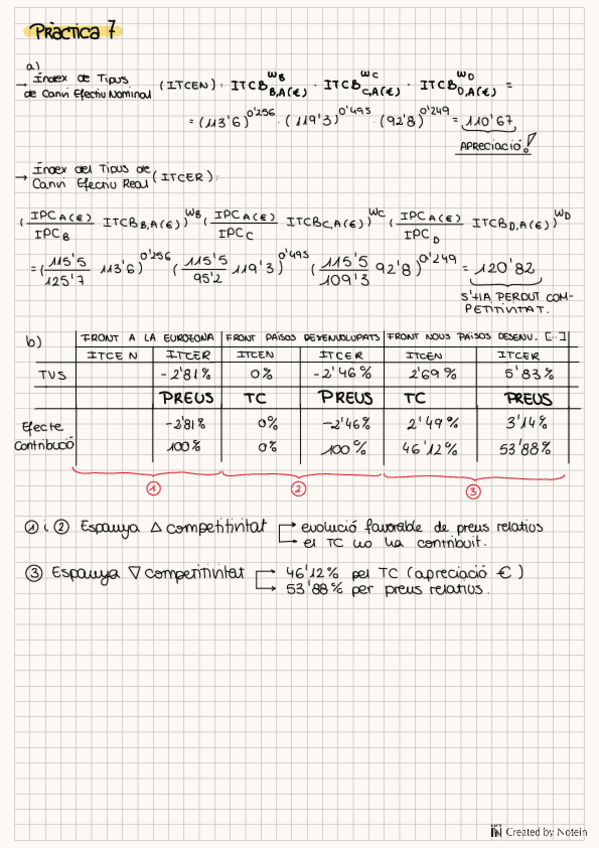 PRÀCTICA 7
a)
→ Índex de Tipus de Canvi Efectiu Nominal (ITCEN): ITCB_{B,A(€)}^{W_B} · ITCB_{C,A(€)}^{W_C} · ITCB_{D,A(€)}^{W_D} =
= (113'6)^{0'256} · (119'3)^{0'495} · (92'8)^{0'249} = 110'67
APRECIACIÓ!
→ Índex del Tipus de Canvi Efectiu Real (ITCER):
(IPC_{A(€)}/IPC_B ITCB_{B,A(€)})^{W_B} (IPC_{A(€)}/IPC_C ITCB_{C,A(€)})^{W_C} (IPC_{A(€)}/IPC_D ITCB_{D,A(€)})^{W_D}
= (115'5/125'7 113'6)^{0'256} (115'5/95'2 119'3)^{0'495} (115'5/109'3 92'8)^{0'249} = 120'82
S'HA PERDUT COM-
PETITIVITAT.
b) FRONT A LA EUROZONA FRONT PAÏSOS DESENVOLUPATS FRONT NOUS PAÏSOS DESENV. [...]
ITCEN ITCER ITCEN ITCER ITCEN ITCER
TVS -2'81% 0% -2'46% 2'69% 5'83%
PREUS TC PREUS TC PREUS
Efecte -2'81% 0% -2'46% 2'49% 3'14%
Contribució 100% 0% 100% 46'12% 53'88%
① ② ③
① i ② Espanya △ competitivitat → evolució favorable de preus relatius
→ el TC no ha contribuit.
③ Espanya ▽ competitivitat → 46'12% pel TC (apreciació €)
→ 53'88% per preus relatius.
Created by Notein